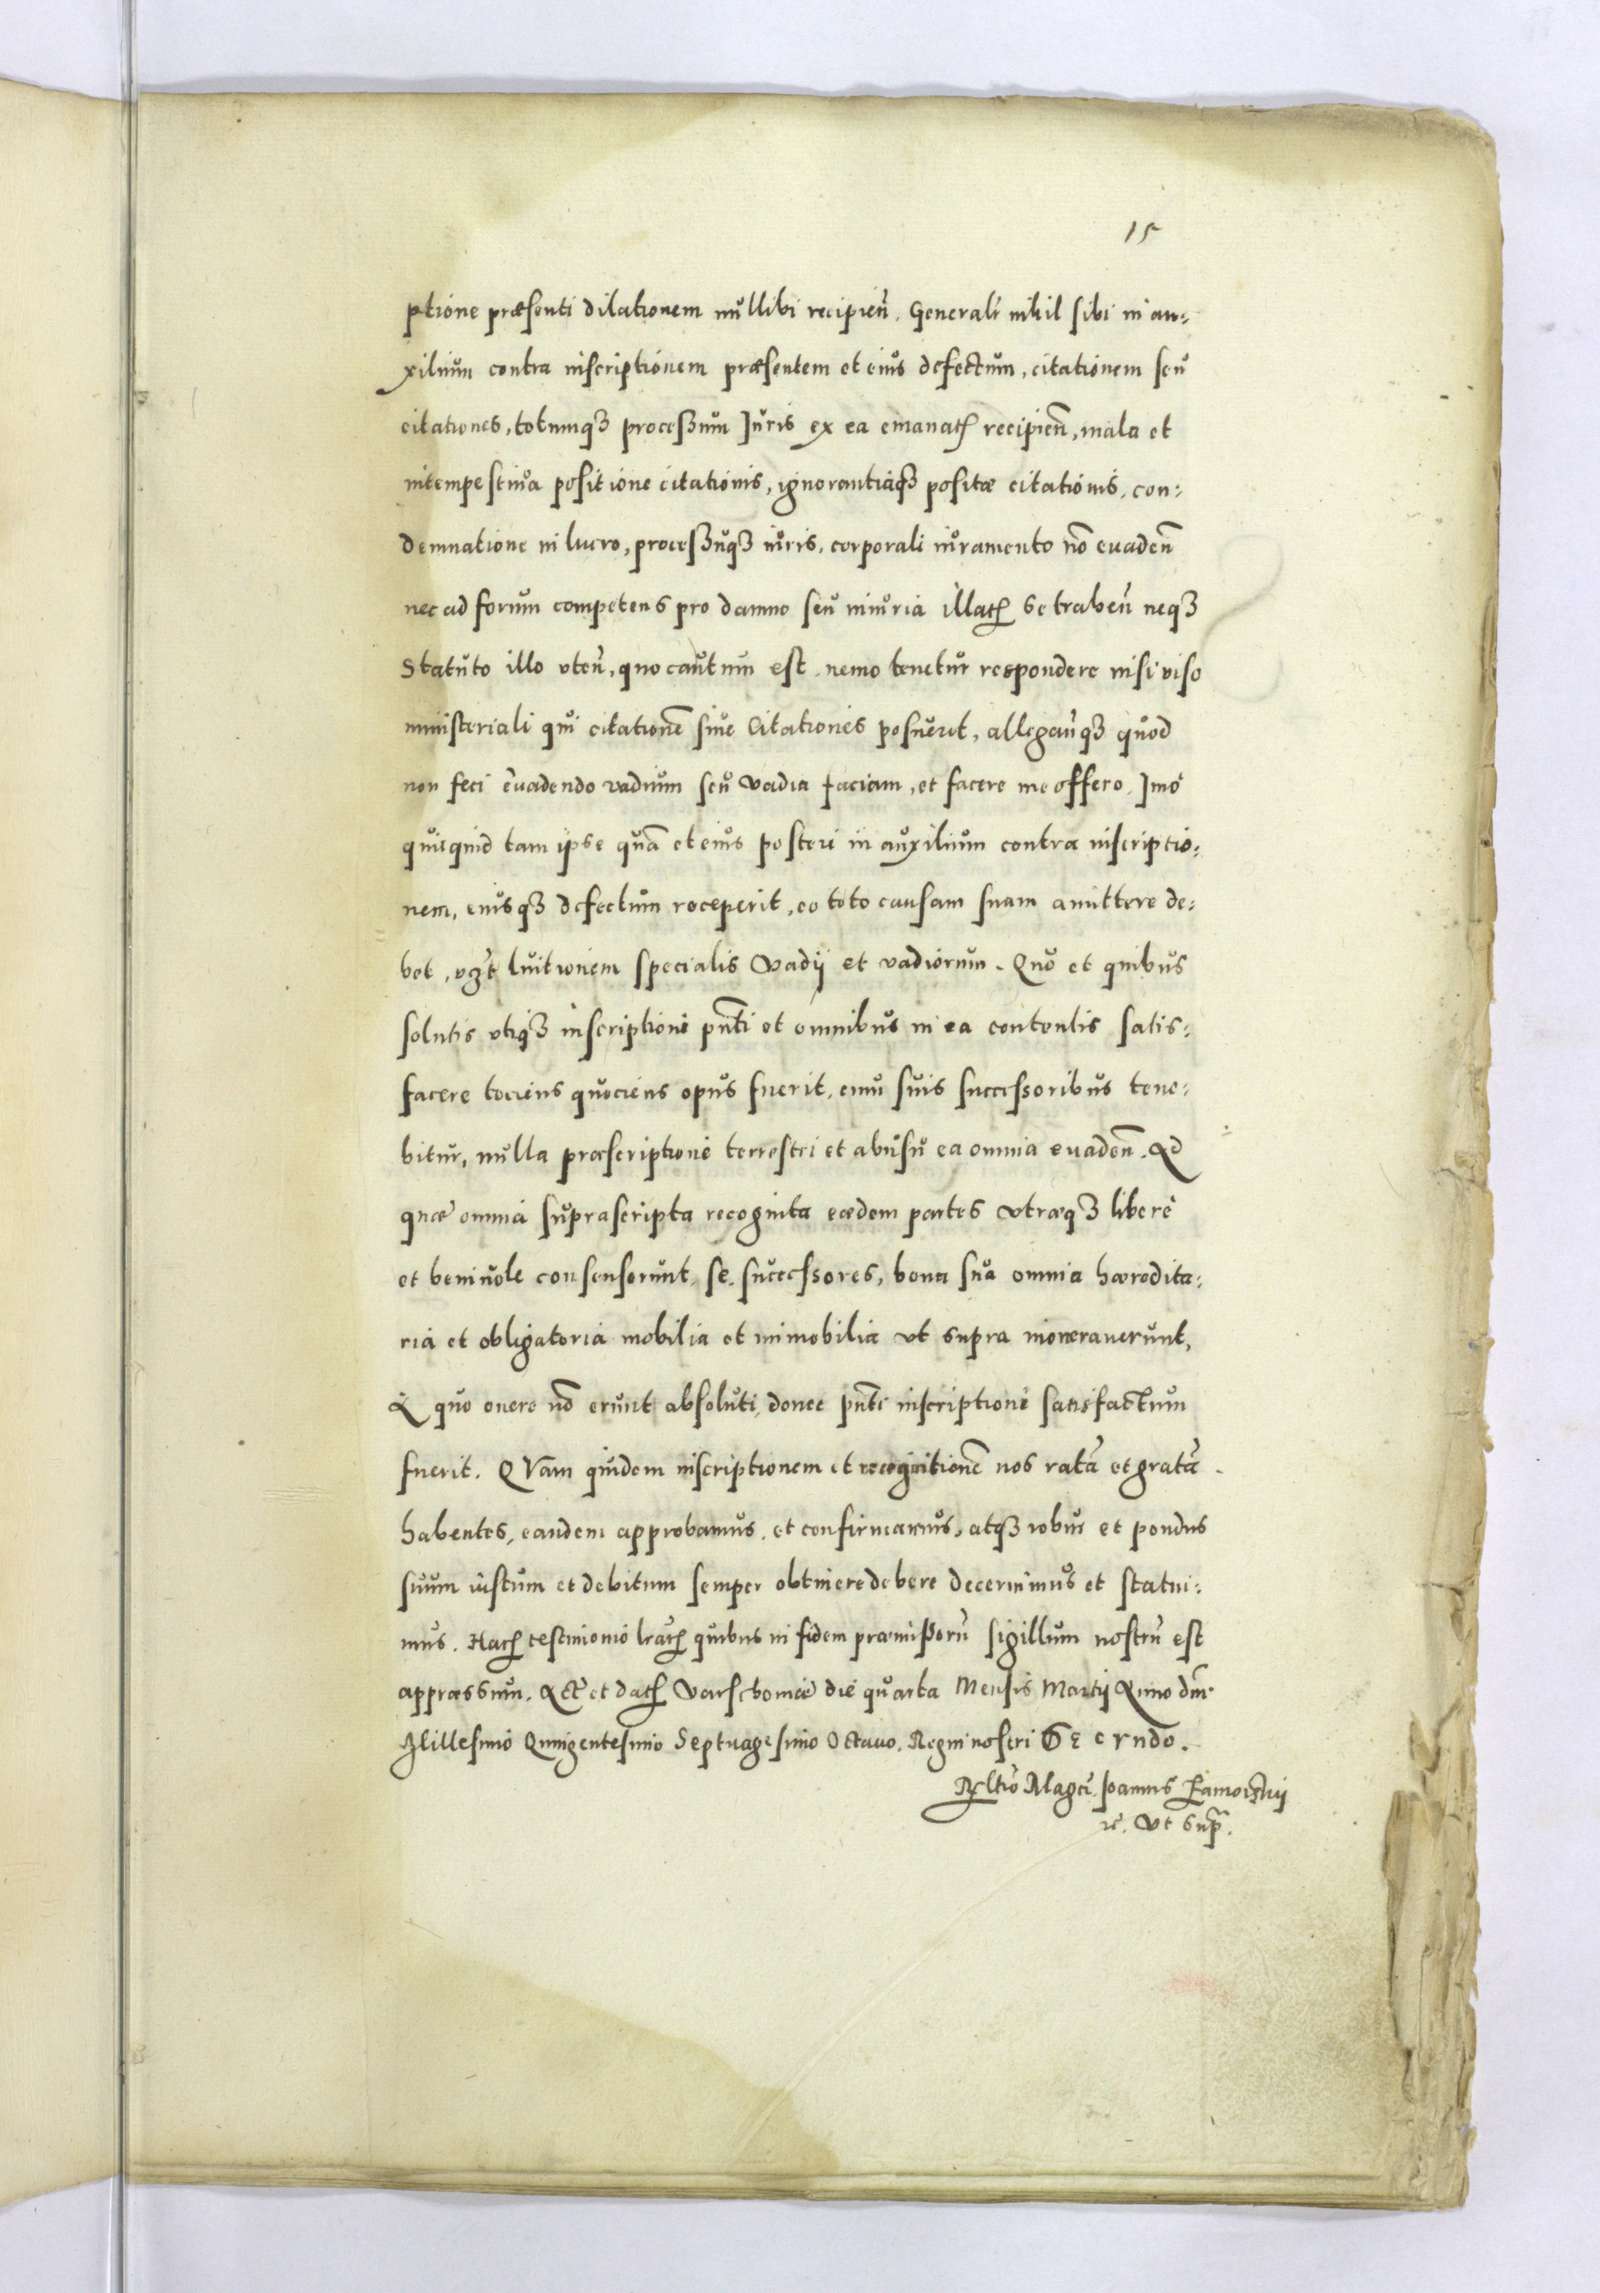 15
ptione præsenti dilationem nullibi recipieñ. Generalr nihil sibi in au-
xilium contra inscriptionem præsentem et eius defectum, citationem seu
citationes, totumq3 processum Juris ex ea emanat recipieñ, mala et
intempestiua positione citationis, ignorantiaq3 positæ citationis, con-
demnatione in lucro, processuq3 iuris, corporali iuramento nō euadeñ
nec ad forum competens pro damno seu iniuria illat se traheñ neq3
Statuto illo vteñ, quo cautum est, nemo tenetur respondere nisi viso
ministeriali qui citationē siue Citationes posuerit, allegañq3 quod
non feci euadendo vadium seu vadia faciam, et facere me offero. Imo
quicquid tam ipse quā et eius posteri in auxilium contra inscriptio-
nem, eiusq3 defectum receperit, eo toto causam suam amittere de-
bet, luitionem specialis Vadij et vadiorum. Quo et quibus
solutis vtiq3 inscriptioni pñti et omnibus in ea contentis satis-
facere tociens quociens opus fuerit, cum suis successoribus tene-
bitur, nulla præscriptione terrestri et abusu ea omnia euadeñ. Ad
quæ omnia suprascripta recognita eædem partes vtræq3 liberè
et beniuole consenserunt, se, successores, bona sua omnia hæredita-
ria et obligatoria mobilia et immobilia vt supra inoneraverunt,
A quo onere nō erunt absoluti, donec pñti inscriptioni satisfactum
fuerit. QVam quidem inscriptionem et recognitionē nos ratā et gratā
habentes, eandem approbamus, et confirmamus, atq3 robur et pondus
suum iustum et debitum semper obtinere debere decernimus et statui-
mus. Har testimonio lrar quibus in fidem præmissorū sigillum nostrū est
appressum. Act et dat Varschouiæ die quarta Mensis Martij Anno dñi
Millesimo Quingentesimo Septuagesimo Octauo, Regni nostri Secundo.
Rltio Magci Joannis Zamoiskij
rc. Vt supr.